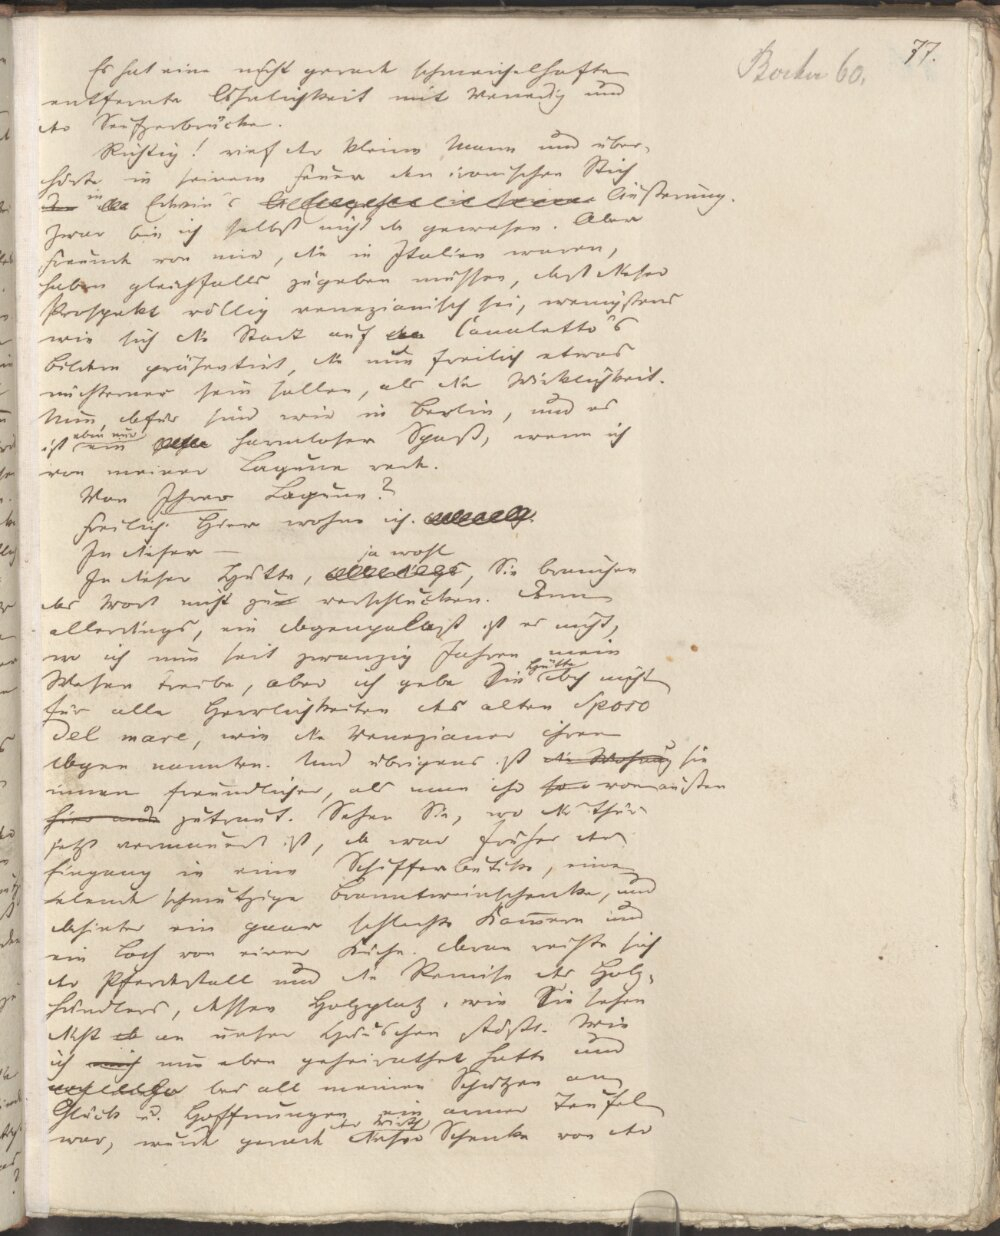 77.
60.
Es hat eine nicht gerade schmeichelhafte
entfernte Ähnlichkeit mit Venedig und
der Seufzerbrücke.
Richtig! rief der kleine Mann und über-
hörte in seinem Feuer den ironischen Stich
in Edwin's Äußerung.
Zwar bin ich selbst nicht da gewesen. Aber
Freunde von mir, die in Italien waren,
haben gleichfalls zugeben müssen, daß dieser
Prospekt völlig venezianisch sei, wenigstens
wie sich die Stadt auf den Canaletto's
Bildern präsentirt, die nun freilich etwas
nüchterner sein sollen, als die Wirklichkeit.
Nun, dafür sind wir in Berlin, und es
ist eben nur ein harmloser Spaß, wenn ich
von meiner Lagune rede.
Von Ihrer Lagune?
Freilich. Hier wohne ich.
In dieser —
In dieser Hütte, ja wohl, Sie brauchen
das Wort nicht zu verschlucken. Denn
allerdings, ein Dogenpalast ist es nicht,
wo ich nun seit zwanzig Jahren mein
Wesen treibe, aber ich gebe die Hütte doch nicht
für alle Herrlichkeiten des alten Sposo
del mare, wie die Venezianer ihren
Dogen nannten. Und übrigens ist die Wohnung sie
innen freundlicher, als man ihr von außen
hier aus zutraut. Sehen Sie, wo die Thür
jetzt vermauert ist, da war früher der
Eingang in eine Schifferbutike, eine
elende schmutzige Branntweinschenke, und
dahinter ein paar schlechte Kammern und
ein Loch von einer Küche. Daran reihte sich
der Pferdestall und die Remise des Holz-
händlers, dessen Holzplatz, wie Sie sehen
dicht an unser Häuschen stößt. Wie
ich mich nun eben geheirathet hatte und
bei all meinen Schätzen an
Glück u. Hoffnungen ein armer Teufel
war, wurde gerade der Wirth dieser Schenke von der